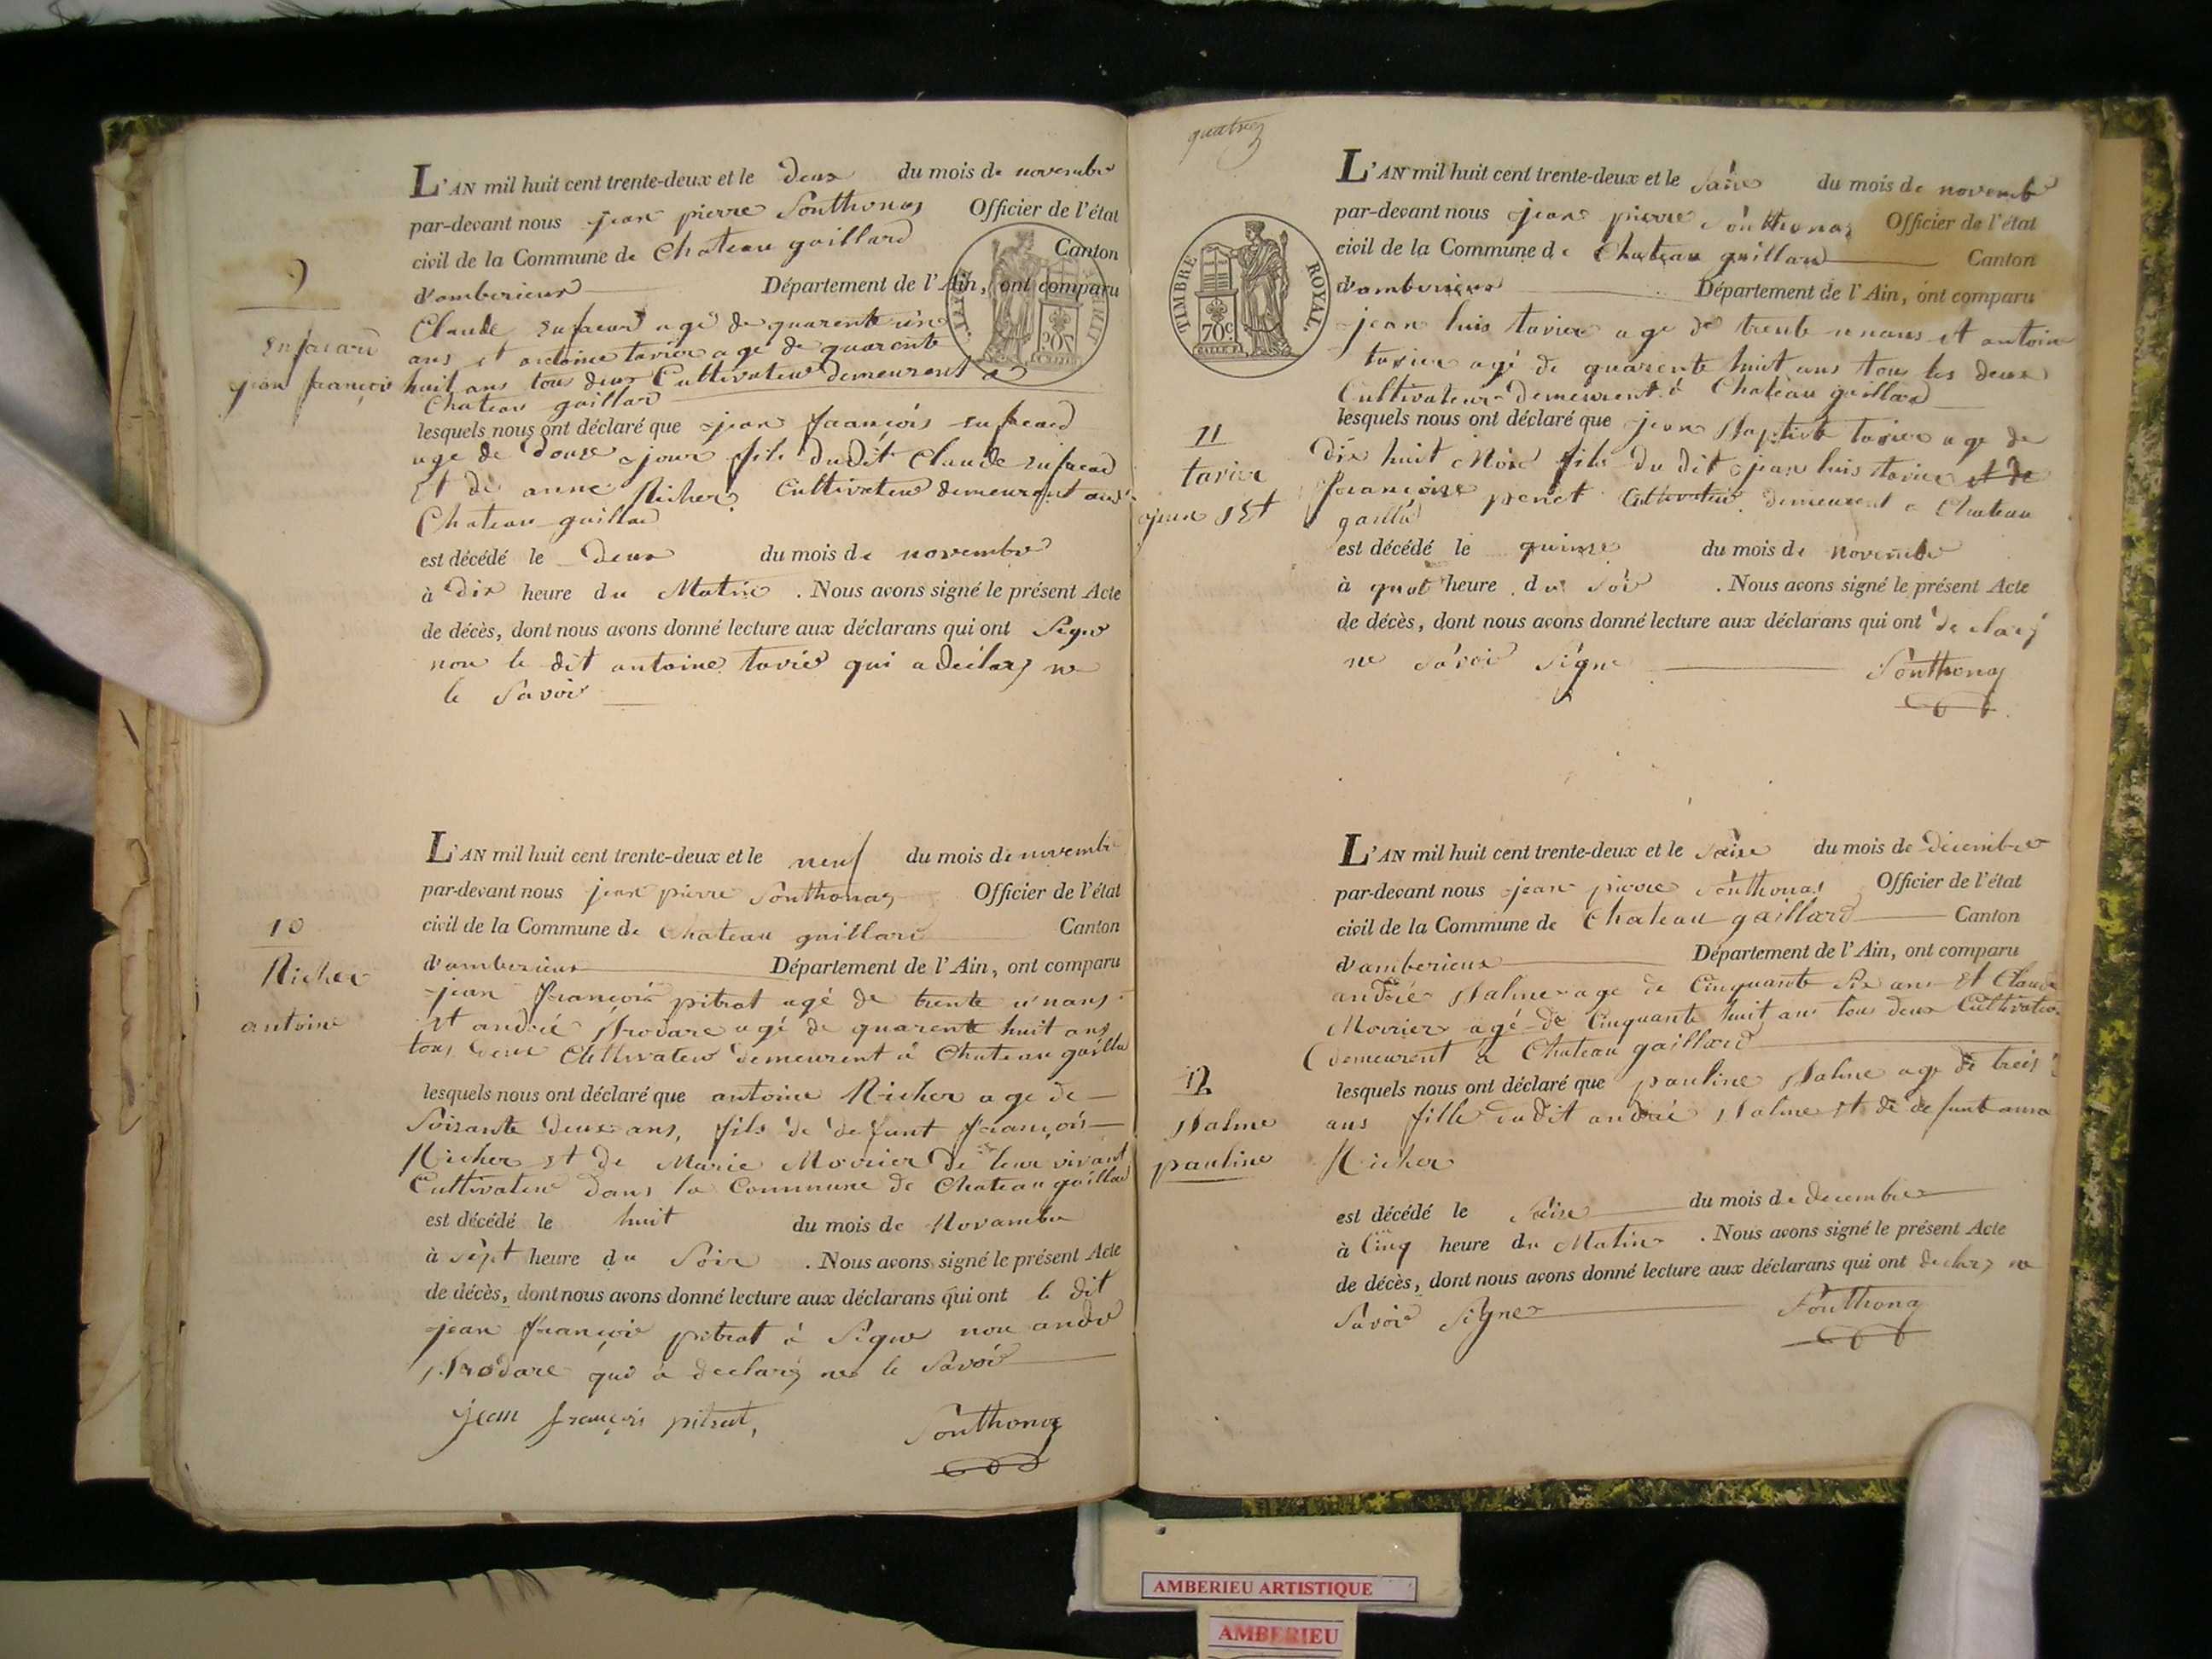 L'AN mil huit cent trente-deux et le deux du mois de novembre
par-devant nous jean pierre Southonas Officier de l'état
civil de la Commune de Chateau gaillard Canton
d'amberieux Département de l'Ain, ont comparu
9
jean françois
Claude agé de quarente un
ans et antoine tavier agé de quarente
huit ans tou deux Cultivateur demeurent a
Chateau gaillar
lesquels nous ont déclaré que jean françois
age de douse jour fils dudit Claude
Et de anne Richer Cultivateur demeurant
Chateau gaillar
est décédé le deux du mois de novembre
à dix heure du Matin . Nous avons signé le présent Acte
de décès, dont nous avons donné lecture aux déclarans qui ont Signe
non le dit antoine tavier qui a déclaré ne
le Savoir
L'AN mil huit cent trente-deux et le neuf du mois de novembre
par-devant nous jean pierre Southonas Officier de l'état
civil de la Commune de Chateau gaillard Canton
d'amberieux Département de l'Ain, ont comparu
10
Richer
antoine
jean françois pitrat agé de trente unans
et andrié Brodare agé de quarente huit ans
tous deux Cultivateur demeurent à Chateau gailla
lesquels nous ont déclaré que antoine Richer age de
Soisante deux ans, fils de defunt françois
Richer et de Marie Morrier de leur vivant
Cultivateur dans la Commune de Chateau gaillar
est décédé le huit du mois de Novambre
à Sept heure du Soir . Nous avons signé le présent Acte
de décès, dont nous avons donné lecture aux déclarans qui ont le dit
jean françois pitrat à Signe non andre
Brodare qui à declaré ne le Savoir
jean françois pitrat, Southonas
quatre
TIMBRE ROYAL.
70c
L'AN mil huit cent trente-deux et le Saise du mois de novembre
par-devant nous jean pierre Southonas Officier de l'état
civil de la Commune de Chateau gaillard Canton
d'amberieux Département de l'Ain, ont comparu
jean luis tavier age de trente unans et antoine
tavier agé de quarente huit ans tou les deux
Cultivateur demeurent à Chateau gaillard
11
tavier
jean Bt
lesquels nous ont déclaré que jean Baptiste tavier age de
dix huit Mois fils du dit jean luis tavier et de
françoise penet Cultivateur demeurent a Chateau
gaillar
est décédé le quinse du mois de Novembre
à quat heure du Soir . Nous avons signé le présent Acte
de décès, dont nous avons donné lecture aux déclarans qui ont declaré
ne Savoir Signe Southonas
L'AN mil huit cent trente-deux et le Saise du mois de décembre
par-devant nous jean pierre Southonas Officier de l'état
civil de la Commune de Chateau gaillard Canton
d'amberieux Département de l'Ain, ont comparu
andrié Balme age de Cinquante Six ans Et Claude
Morrier agé de Cinquante huit ans tous deux Cultivateur
demeurent à Chateau gaillard
12
Balme
pauline
lesquels nous ont déclaré que pauline Balme age de treis
ans fille dudit andrié Balme et de defunt anne
Richer
est décédé le Saise du mois de decembre
à Cinq heure du Matin . Nous avons signé le présent Acte
de décès, dont nous avons donné lecture aux déclarans qui ont declaré ne
Savoir Signer Southonas
AMBERIEU ARTISTIQUE
AMBERIEU